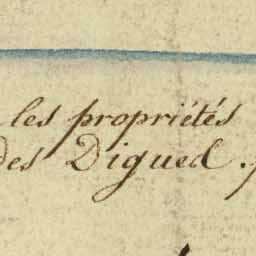 les propriétés
des Digued.